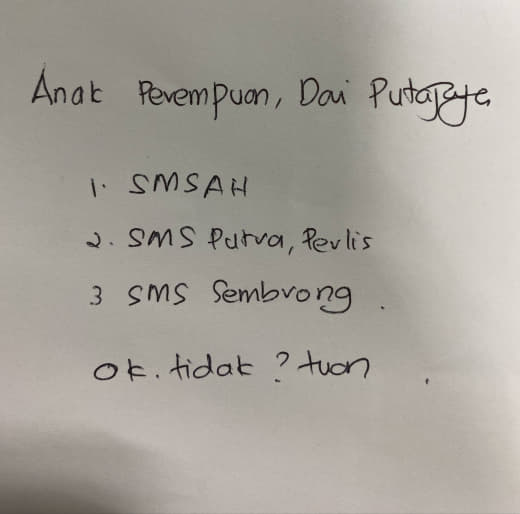 Anak Perempuan, Dai Putrajaya
1. SMSAH
2. SMS Putra, Perlis
3 SMS Sembrong.
ok. tidak ? tuan